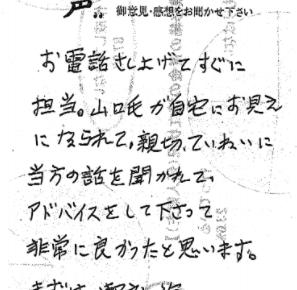 声..
御意見・感想をお聞かせ下さい
お電話さし上げてすぐに
担当。山口氏が自宅にお見え
になられて、親切、ていねいに
当方の話を聞かれて、
アドバイスをして下さって
非常に良かったと思います。
まずは